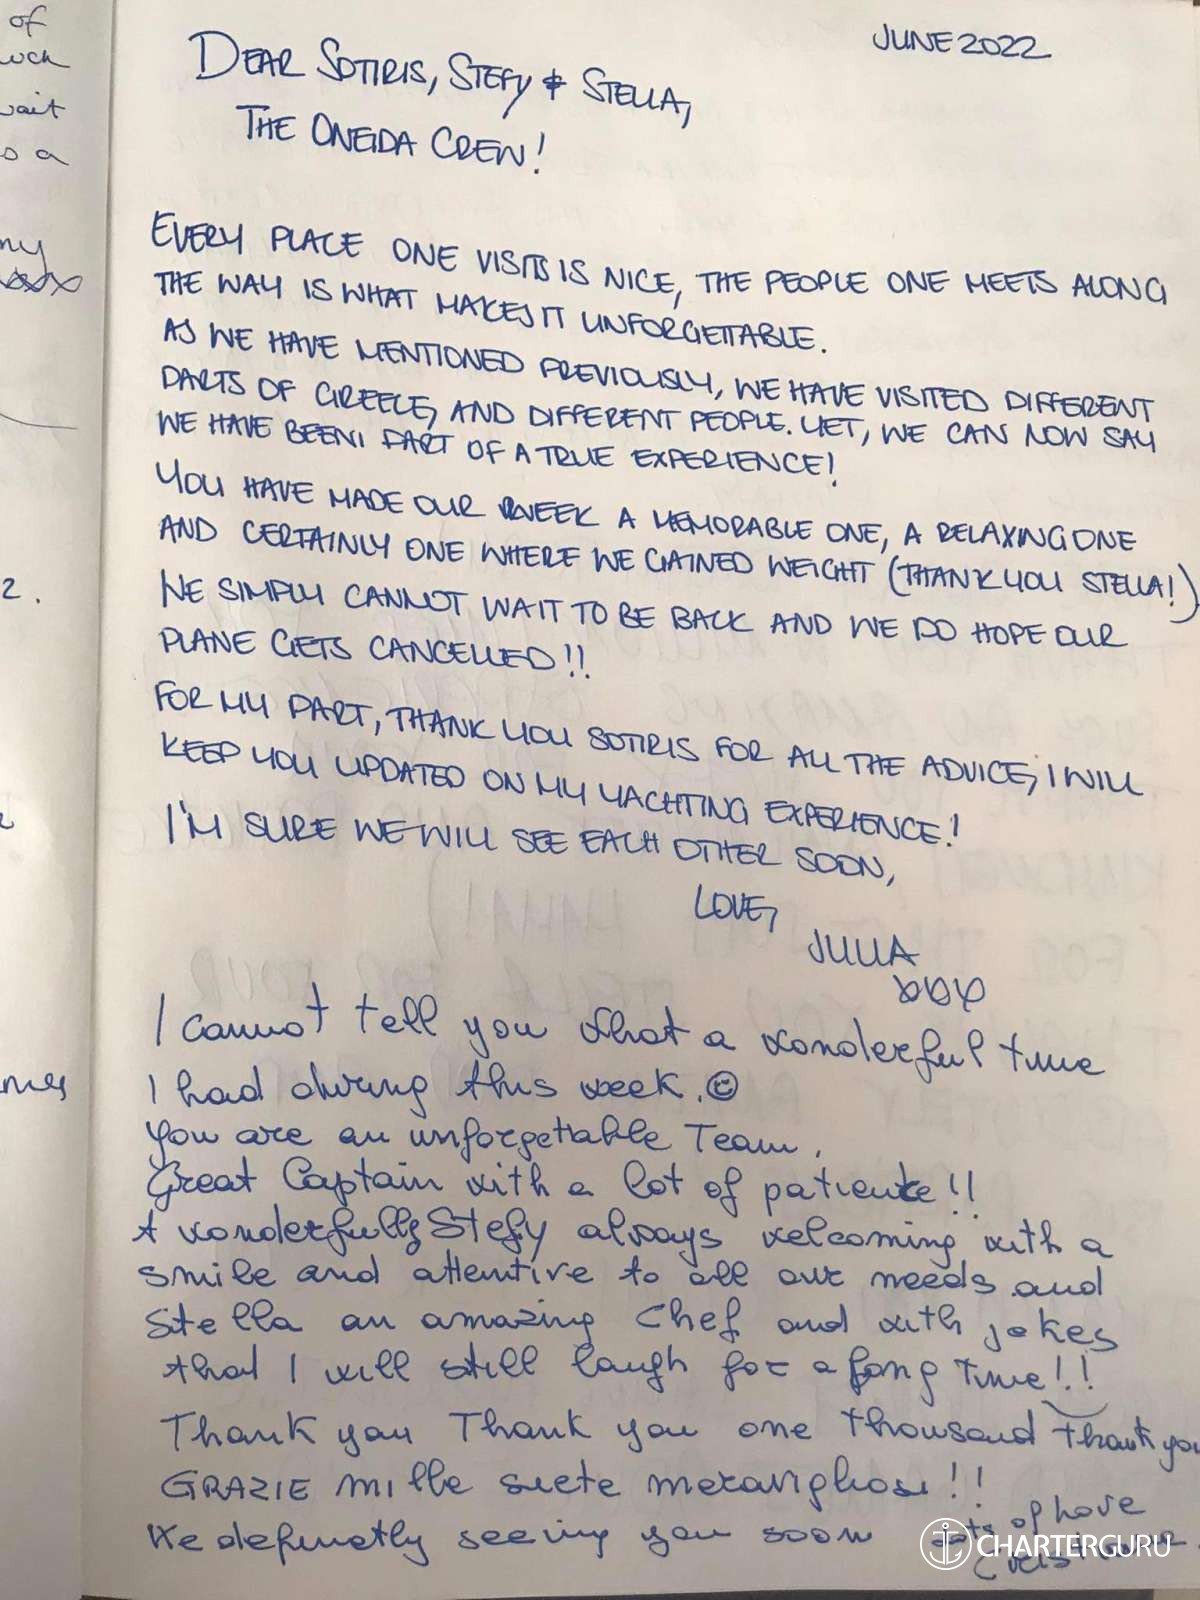 of
wait
so a
my
2.
JUNE 2022
DEAR SOTIRIS, STEFY & STELLA,
THE ONEIDA CREW!
EVERY PLACE ONE VISITS IS NICE, THE PEOPLE ONE MEETS ALONG
THE WAY IS WHAT MAKES IT UNFORGETTABLE.
AS WE HAVE MENTIONED PREVIOUSLY, WE HAVE VISITED DIFFERENT
PARTS OF GREECE, AND DIFFERENT PEOPLE. YET, WE CAN NOW SAY
WE HAVE BEEN PART OF A TRUE EXPERIENCE!
YOU HAVE MADE OUR WEEK A MEMORABLE ONE, A RELAXING ONE
AND CERTAINLY ONE WHERE WE GAINED WEIGHT (THANK YOU STELLA!)
WE SIMPLY CANNOT WAIT TO BE BACK AND WE DO HOPE OUR
PLANE GETS CANCELLED!!
FOR MY PART, THANK YOU SOTIRIS FOR ALL THE ADVICE, I WILL
KEEP YOU UPDATED ON MY YACHTING EXPERIENCE!
I'M SURE WE WILL SEE EACH OTHER SOON,
LOVE,
JULIA
I cannot tell you what a wonderful time
I had during this week. ☺
You are an unforgettable Team.
Great Captain with a lot of patience!!
A wonderfully Stefy always welcoming with a
smile and attentive to all our needs and
Stella an amazing chef and with jokes
that I will still laugh for a long time!!
Thank you Thank you one thousand thank you
GRAZIE mille siete meravigliosi!!
We definetly seeing you soon lots of love
CHARTERGURU